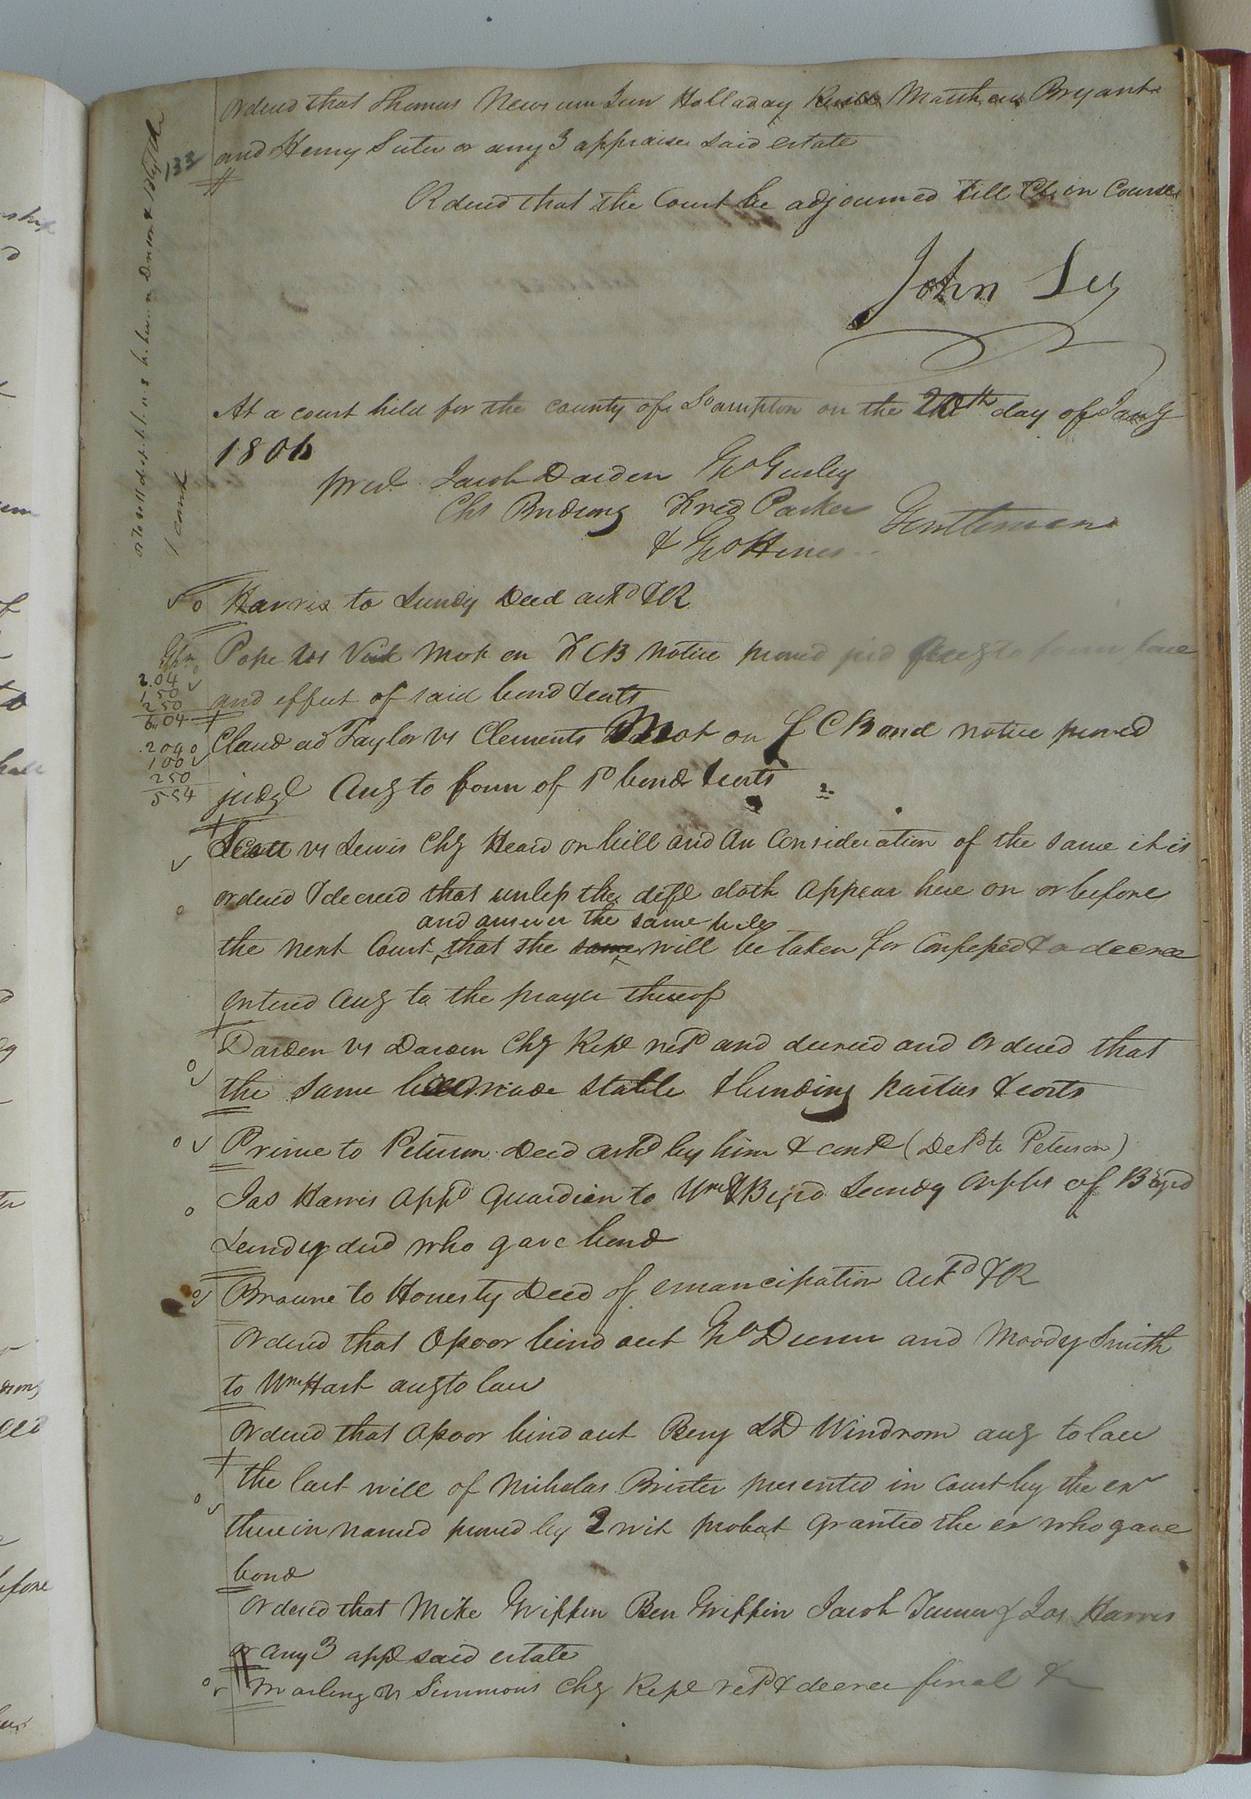 133
Ordered that Thomas Newsum Jun Holladay Matthew Bryant
and Henry Suter or any 3 appraise said estate
Ordered that the Court be adjourned till Ct in Course
John
At a court held for the county of So ampton on the 20th day of Jany
1806
presd Jacob Darden Go Gurley
Chs Fred Parker Gentlemen
& Go Hines
Harris to Lundy Deed ackd & R
2.04
1 50
2 50
6.04
Pope vs Vick Mot on F C B notice proved
and effect of said bond & costs
2040
100
250
554
Claud ad Taylor vs Clements Mot on f C Bond notice proved
judgt Aug to form of sd bond & costs
Scott vs Lewis Chy Heard on bill and on Consideration of the same it is
ordered & decreed that unless the deft doth appear here on or before
and answer the same bill
the next Court that the same will be taken for Confessed & a decree
entered Aug to the prayer thereof
Darden vs Darden Chy Rept retd and decreed and Ordered that
the same be made stable & binding parties & costs
Prime to Peterson Deed ackd by him & contd (Deld to Peterson)
Jas Harris appd Guardian to Wm & Byrd Lundy Orphs of Byrd
Lundy decd who gave bond
Browne to Honesty Deed of emancipation ackd & R
Ordered that Opoor bind out Go Dunn and Moody Smith
to Wm Hart aug to law
Ordered that Opoor bind out Benj Windrom aug to law
the last will of Nicholas Brister presented in court by the exr
therein named proved by 2 wit probat granted the ex who gave
bond
Ordered that Mike Griffin Ben Griffin Jacob Turner & Jos Harris
or any 3 app said estate
vs Simmons Chy Rept retd & decree final &